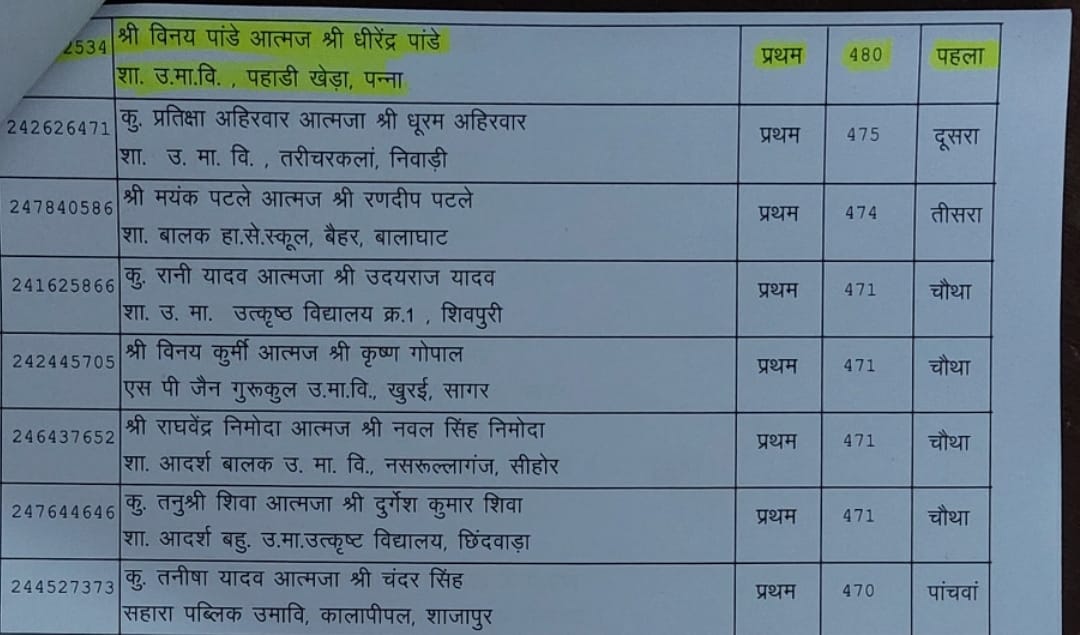 2534 श्री विनय पांडे आत्मज श्री धीरेंद्र पांडे
शा. उ.मा.वि. , पहाडी खेड़ा, पन्ना
प्रथम 480 पहला
242626471 कु. प्रतिक्षा अहिरवार आत्मजा श्री धूरम अहिरवार
शा. उ. मा. वि. , तरीचरकलां, निवाड़ी
प्रथम 475 दूसरा
247840586 श्री मयंक पटले आत्मज श्री रणदीप पटले
शा. बालक हा.से.स्कूल, बैहर, बालाघाट
प्रथम 474 तीसरा
241625866 कु. रानी यादव आत्मजा श्री उदयराज यादव
शा. उ. मा. उत्कृष्ठ विद्यालय क्र.1 , शिवपुरी
प्रथम 471 चौथा
242445705 श्री विनय कुर्मी आत्मज श्री कृष्ण गोपाल
एस पी जैन गुरूकुल उ.मा.वि., खुरई, सागर
प्रथम 471 चौथा
246437652 श्री राघवेंद्र निमोदा आत्मज श्री नवल सिंह निमोदा
शा. आदर्श बालक उ. मा. वि., नसरूल्लागंज, सीहोर
प्रथम 471 चौथा
247644646 कु. तनुश्री शिवा आत्मजा श्री दुर्गेश कुमार शिवा
शा. आदर्श बहु. उ.मा.उत्कृष्ट विद्यालय, छिंदवाड़ा
प्रथम 471 चौथा
244527373 कु. तनीषा यादव आत्मजा श्री चंदर सिंह
सहारा पब्लिक उमावि, कालापीपल, शाजापुर
प्रथम 470 पांचवां